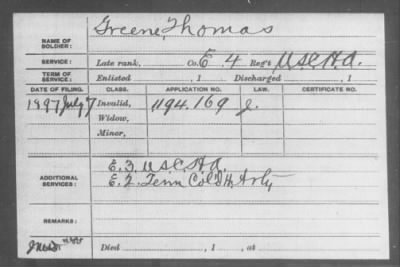 Greene, Thomas
NAME OF SOLDIER:
SERVICE: Late rank, Co. E 4 Reg't U.S.C.H.A.
TERM OF SERVICE: Enlisted , 1 Discharged , 1
DATE OF FILING. CLASS. APPLICATION NO. LAW. CERTIFICATE NO.
1897 July 7 Invalid, 1194.169 J.
Widow,
Minor,
ADDITIONAL SERVICES: E. 3. U.S.C.H.A.
E. 2. Tenn Col'd H. Arty
REMARKS:
Died , 1 , at